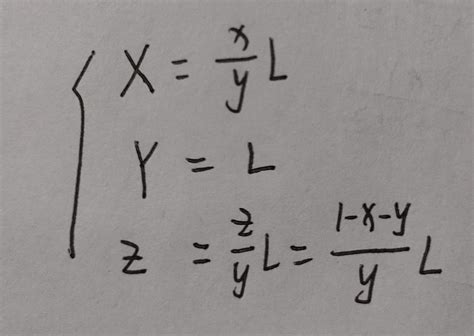 X = x/y L
Y = L
z = z/y L = 1-x-y/y L